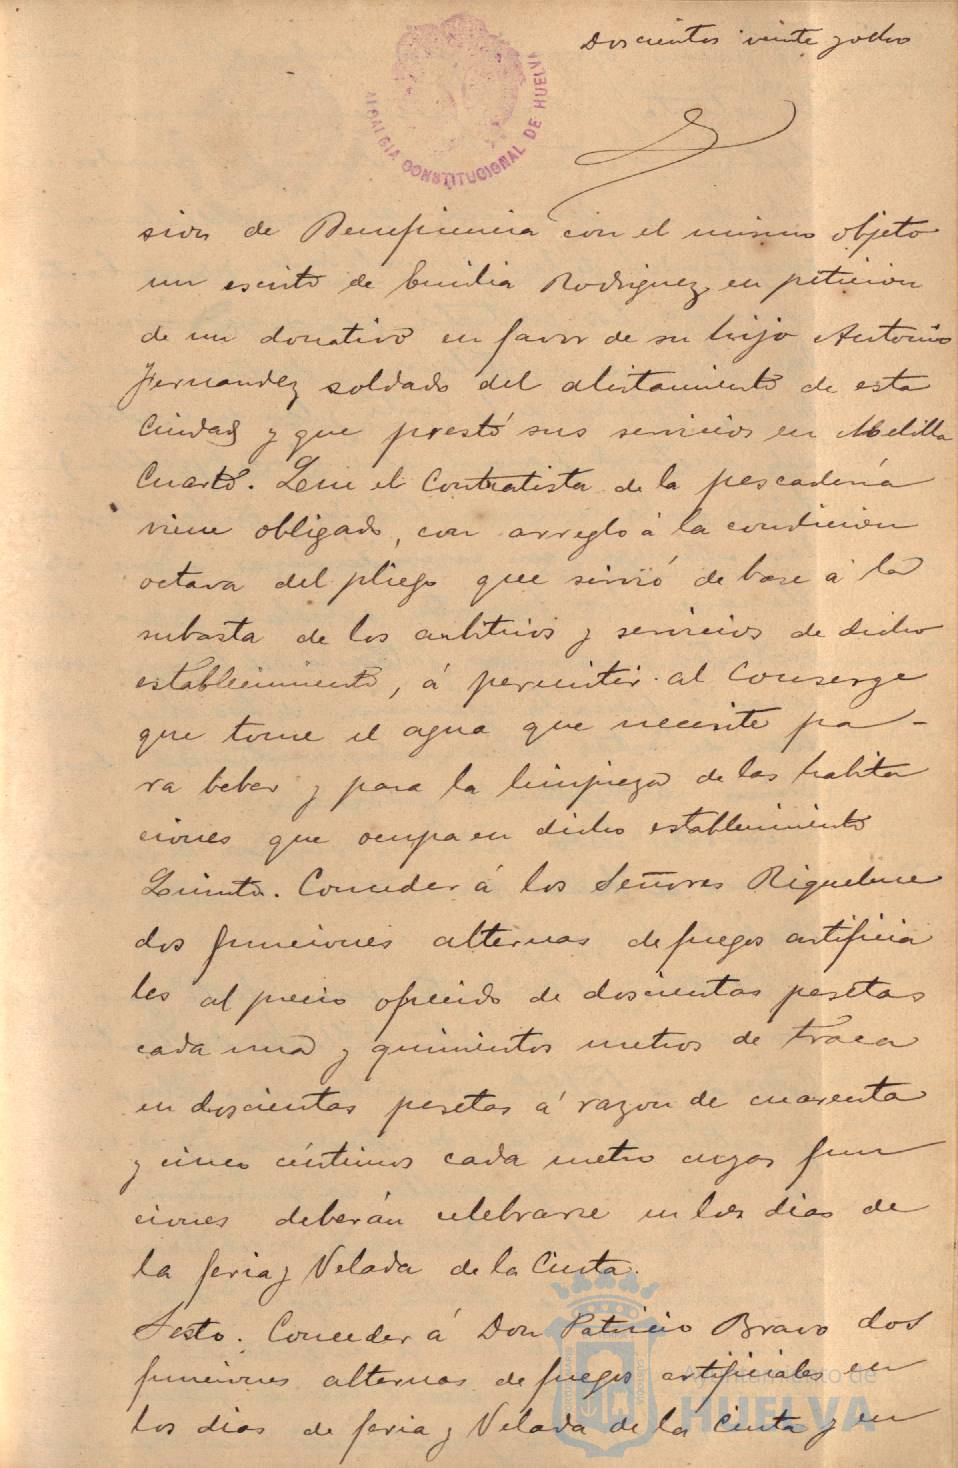 Doscientos veinte y ocho
ALCALDIA CONSTITUCIONAL DE HUELVA
sion de Beneficencia con el mismo objeto
un escrito de Emilia Rodriguez en peticion
de un donativo en favor de su hijo Antonio
Fernandez soldado del alistamiento de esta
Ciudad y que prestó sus servicios en Melilla
Cuarto. Que el Contratista de la pescadería
viene obligado, con arreglo á la condicion
octava del pliego que sirvió de base á la
subasta de los arbitrios y servicios de dicho
establecimiento, á permitir al Conserge
que tome el agua que necesite pa-
ra beber y para la limpieza de las habita
ciones que ocupa en dicho establecimiento
Quinto. Conceder á los Señores Riquelme
dos funciones alternas de fuegos artificia
les al precio ofrecido de doscientas pesetas
cada una y quinientos metros de traca
en doscientas pesetas á razon de cuarenta
y cinco céntimos cada metro cuyas fun
ciones deberán celebrarse en los dias de
la feria y Velada de la Cinta.
Sesto. Conceder á Don Patricio Bravo dos
funciones alternas de fuegos artificiales en
los dias de feria y Velada de la Cinta y en
Ayuntamiento de
HUELVA